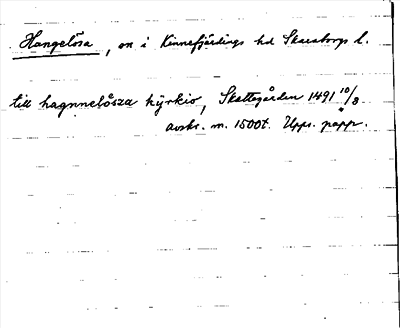 Hangelösa, sn i Kinnefjärdings hd Skaraborgs l.
till hagnnelåsza kyrkio, Skattegården 1491 10/8
avskr. m. 1500t. Upps. papp.